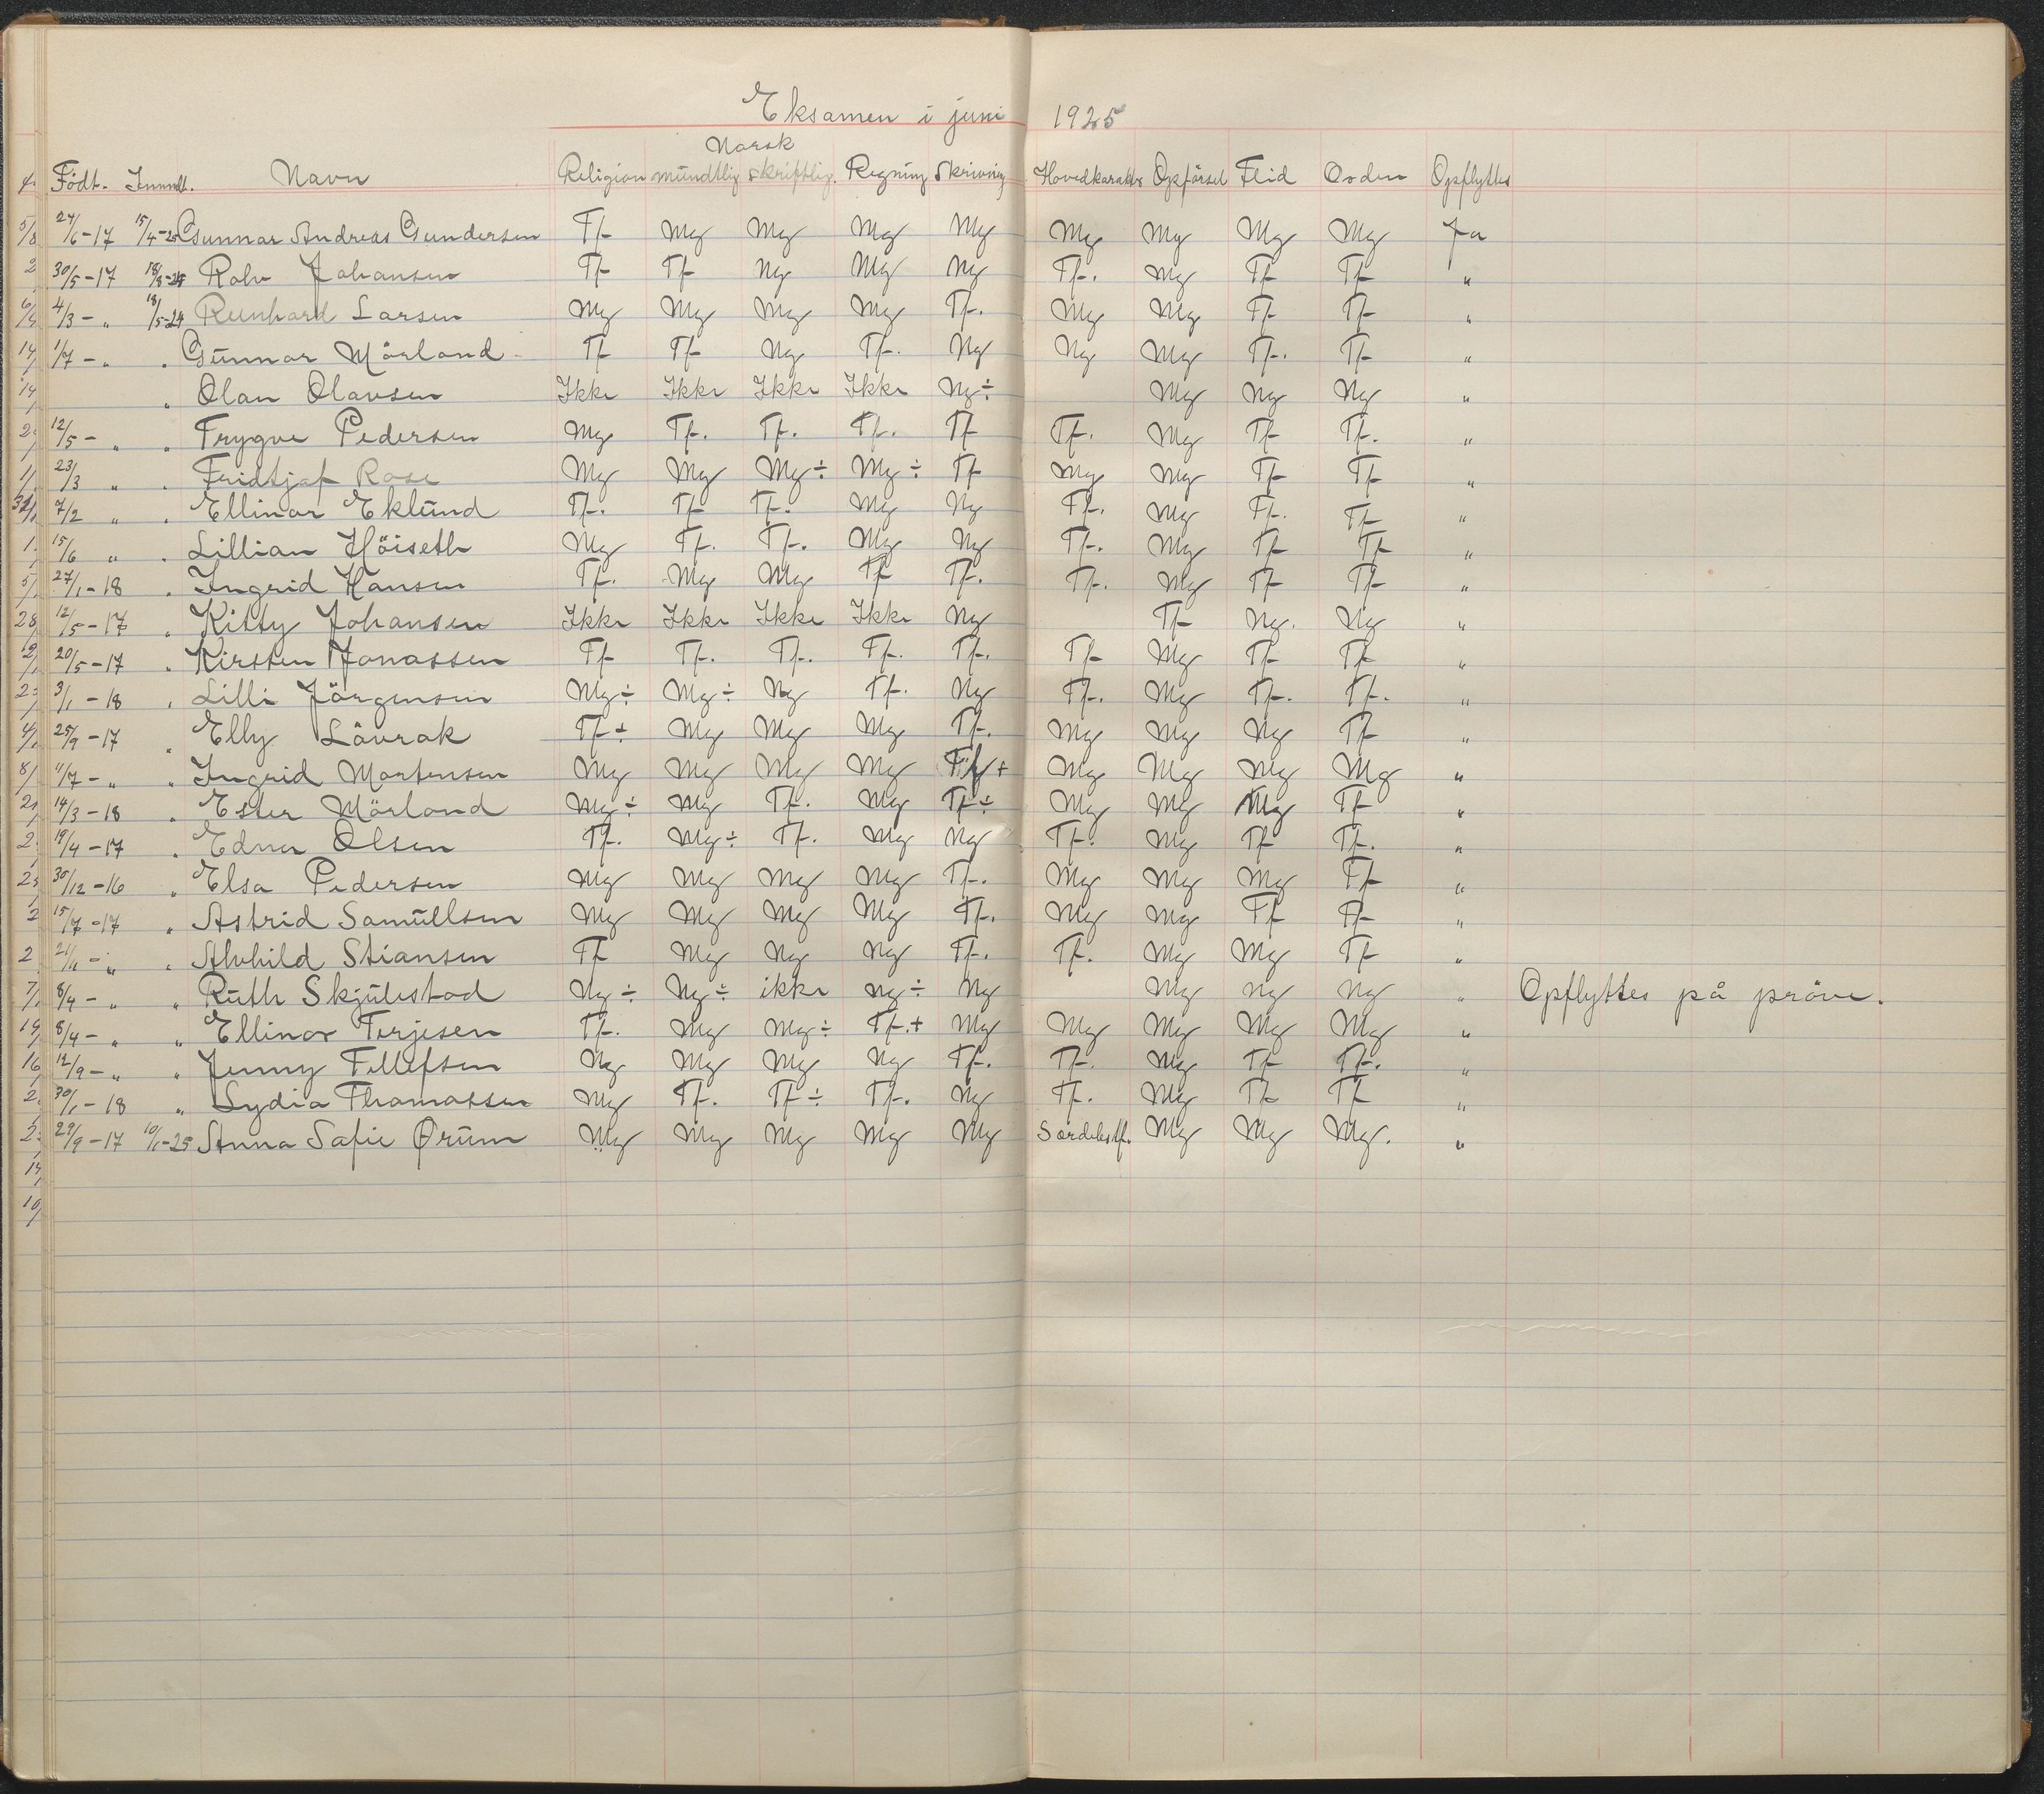 Eksamen i juni 1925
Norsk
Født. Innmdt. Navn Religion mundtlig skriftlig. Regning Skrivning Hovedkarakter Opførsel Flid Orden Opflyttes
24/6-17 15/4-25 Gunnar Andreas Gundersen Tf Mg Mg Mg Mg Mg Mg Mg Mg Ja
30/5-17 18/8-24 Rolv Johansen Tf Tf Ng Mg Ng Tf. Mg Tf Tf "
4/3 - " 18/5-24 Reinhard Larsen Mg Mg Mg Mg Tf. Mg Mg Tf Tf "
1/7 - " " Gunnar Mörland Tf Tf Ng Tf. Ng Ng Mg Tf. Tf "
" Olav Olavsen Ikke Ikke Ikke Ikke Ng÷ Mg Ng Ng "
12/5 - " " Trygve Pedersen Mg Tf. Tf. Tf. Tf Tf. Mg Tf Tf. "
23/3 " " Fridtjof Rose Mg Mg Mg÷ Mg÷ Tf Mg Mg Tf Tf "
7/2 " " Ellinor Eklund Tf. Tf Tf. Mg Ng Tf. Mg Tf. Tf "
15/6 " " Lillian Höiseth Mg Tf. Tf. Mg Ng Tf. Mg Tf Tf "
27/1-18 " Ingrid Hansen Tf. Mg Mg Tf Tf. Tf. Mg Tf Tf "
12/5-17 " Kitty Johansen Ikke Ikke Ikke Ikke Ng Tf Ng. Ng "
20/5-17 " Kirsten Jonassen Tf Tf. Tf. Tf. Tf. Tf Mg Tf Tf "
3/1-18 " Lilli Jörgensen Mg÷ Mg÷ Ng Tf. Ng Tf. Mg Tf. Tf. "
25/9-17 " Elly Lövrak Tf÷ Mg Mg Mg Tf. Mg Mg Ng Tf "
11/7 - " " Ingrid Mortensen Mg Mg Mg Mg Tf+ Mg Mg Mg Mg "
14/3-18 " Ester Mörland Mg÷ Mg Tf. Mg Tf÷ Mg Mg Mg Tf "
19/4-17 " Edna Olsen Tf. Mg÷ Tf. Mg Ng Tf. Mg Tf Tf. "
30/12-16 " Elsa Pedersen Mg Mg Mg Mg Tf. Mg Mg Mg Tf "
15/7-17 " Astrid Samuelsen Mg Mg Mg Mg Tf. Mg Mg Tf Tf "
21/11 - " " Alvhild Stiansen Tf Mg Ng Ng Tf. Tf. Mg Mg Tf "
8/4 - " " Ruth Skjulestad Ng÷ Ng÷ ikke ng÷ Ng Mg ng ng " Opflyttes på pröve.
8/4 - " " Ellinor Terjesen Tf. Mg Mg÷ Tf.+ Mg Mg Mg Mg Mg "
12/9 - " " Jenny Tellefsen Ng Mg Mg Ng Tf. Tf. Mg Tf Tf. "
30/1-18 " Lydia Thomassen Mg Tf. Tf÷ Tf. Ng Tf. Mg Tf Tf "
29/9-17 10/1-25 Anna Sofie Ørum Mg Mg Mg Mg Mg Særdelestf. Mg Mg Mg. "